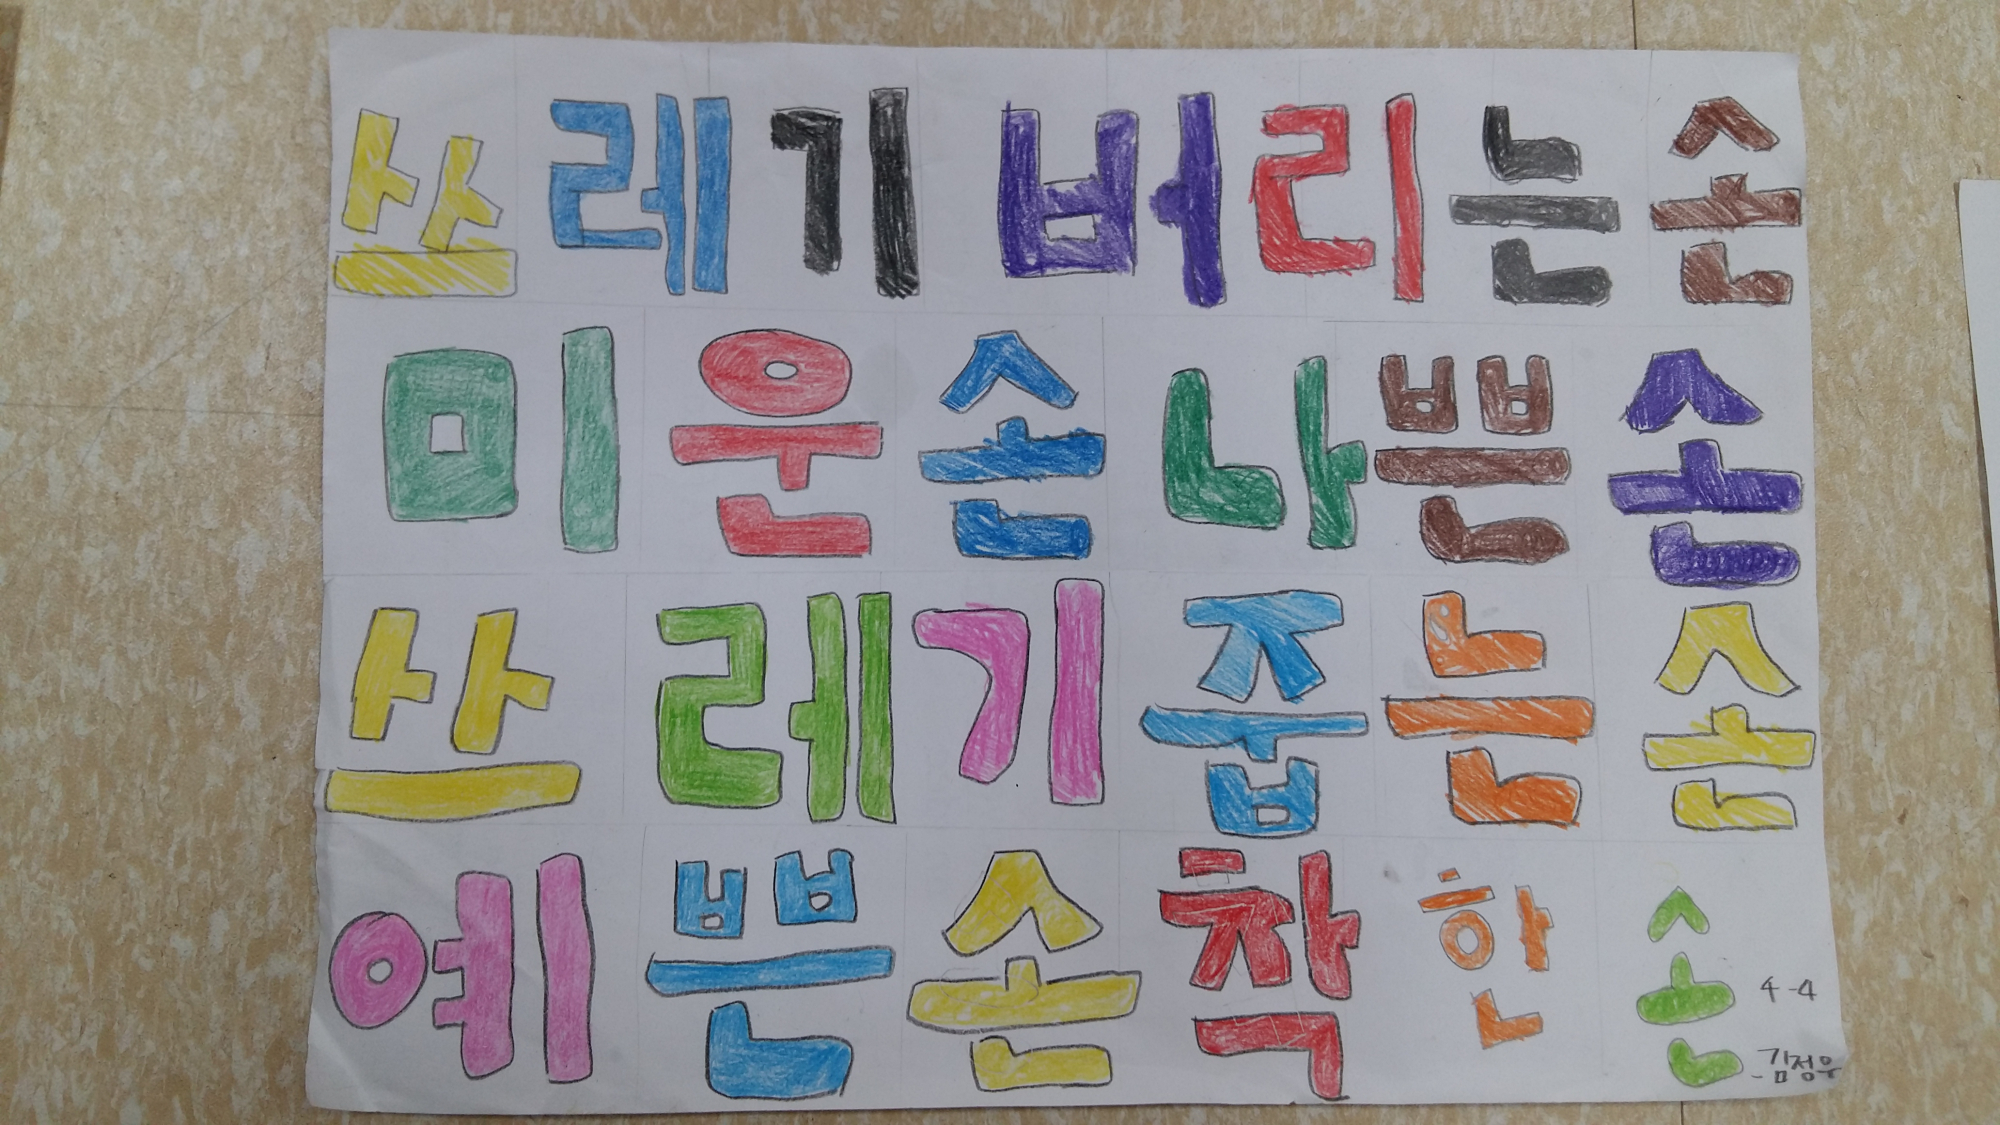 쓰레기 버리는 손
미운손 나쁜손
쓰레기 줍는 손
예쁜손 착한손
4-4
김정우